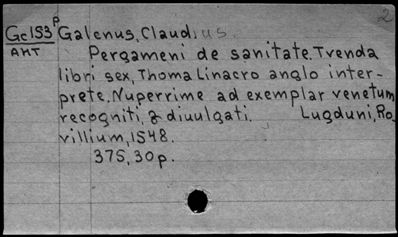 Gc153p Galenus, Claudius. 2
AHT Pergameni de sanitate. Tvenda
libri sex, Thoma Linacro anglo inter-
prete. Nuperrime ad exemplar venetum
recogniti, & diuulgati. Lugduni, Ro
villium, 1548.
375, 30p.